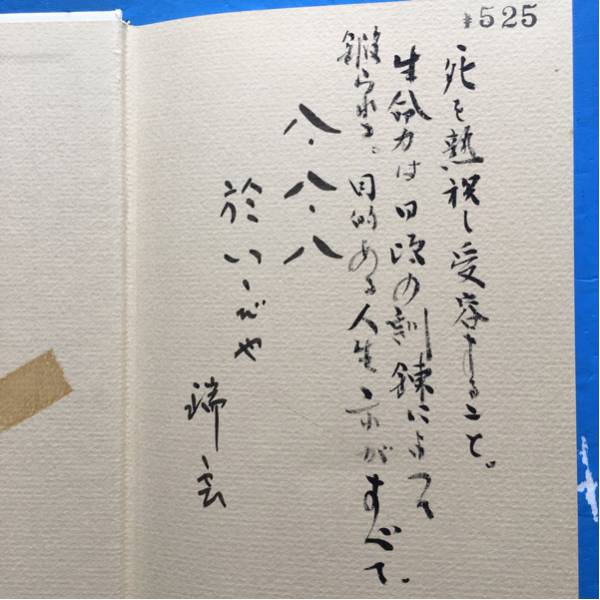 ¥525
死を熟視し受容すること。
生命力は日頃の訓練によって
鍛られる。目的ある人生がすべて。
八・八・八
於
瑞云